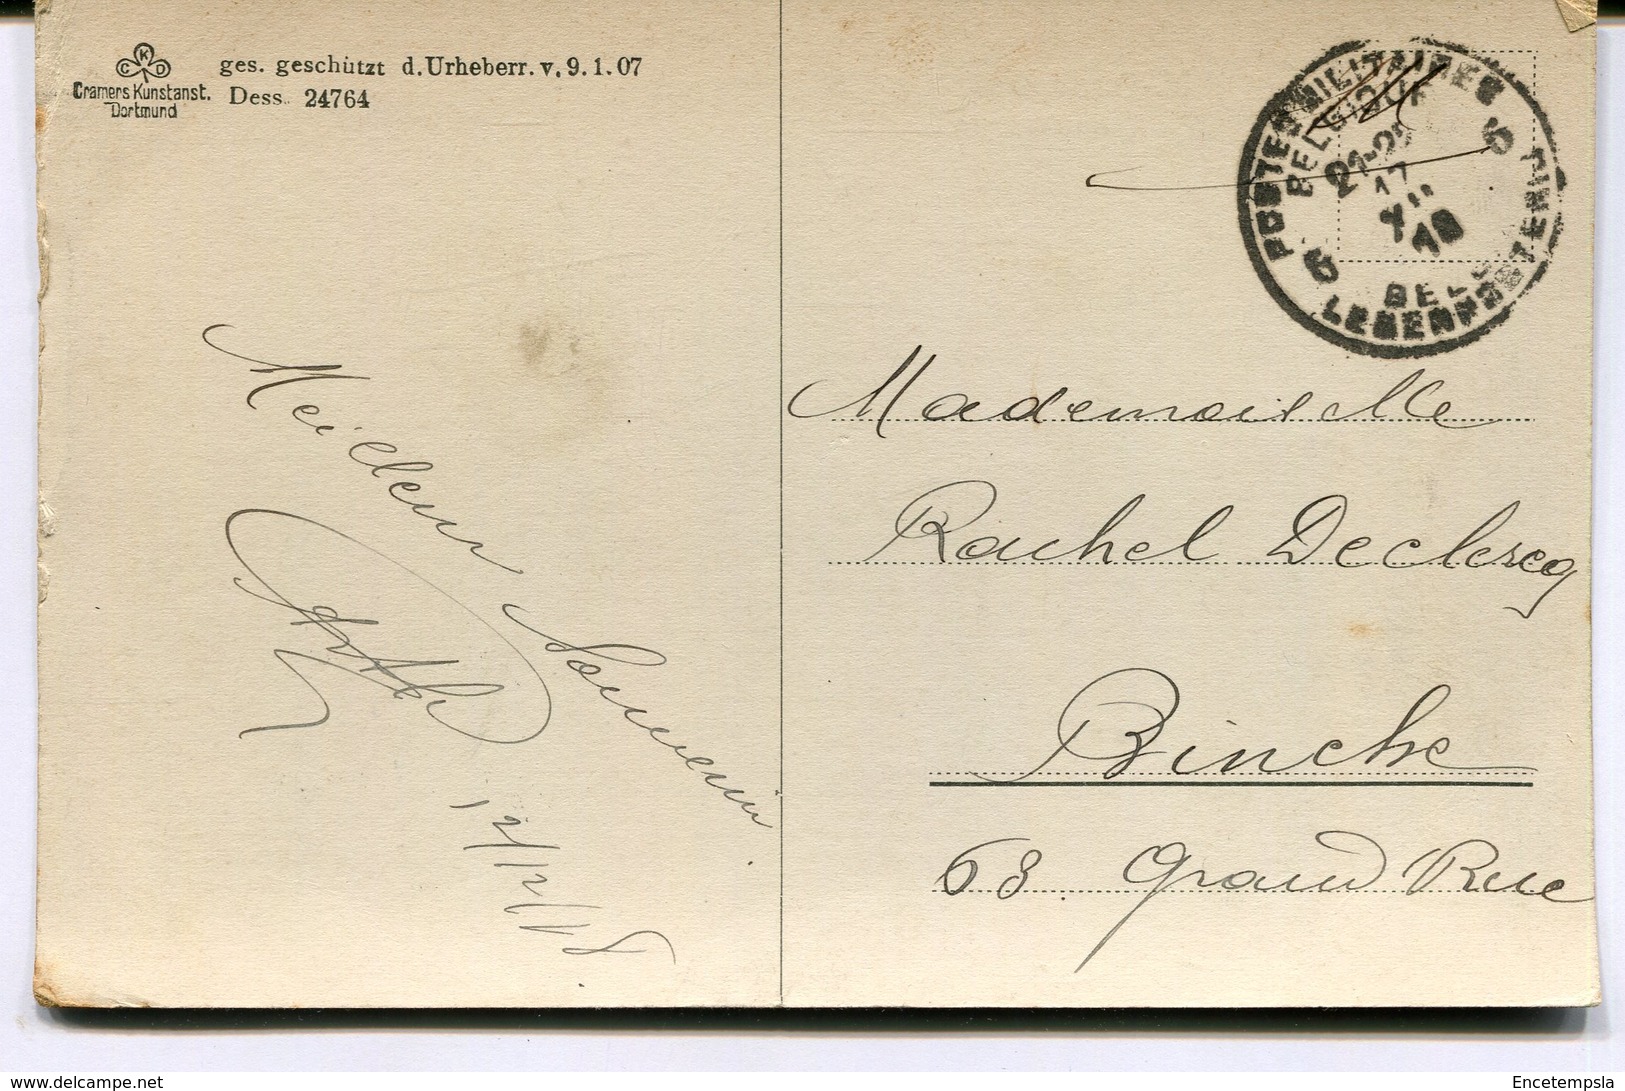 CKD
Cramers Kunstanst.
Dortmund
ges. geschützt d. Urheberr. v. 9.1.07
Dess. 24764
POSTES MILITAIRES
BELGIQUE
6 6
17
XII
18
LEGERPOSTERIJ
Meilleur Souvenir
12/12/18
Mademoiselle
Rachel Declercq
Binche
63 Grand Rue
www.delcampe.net
Encetempsla